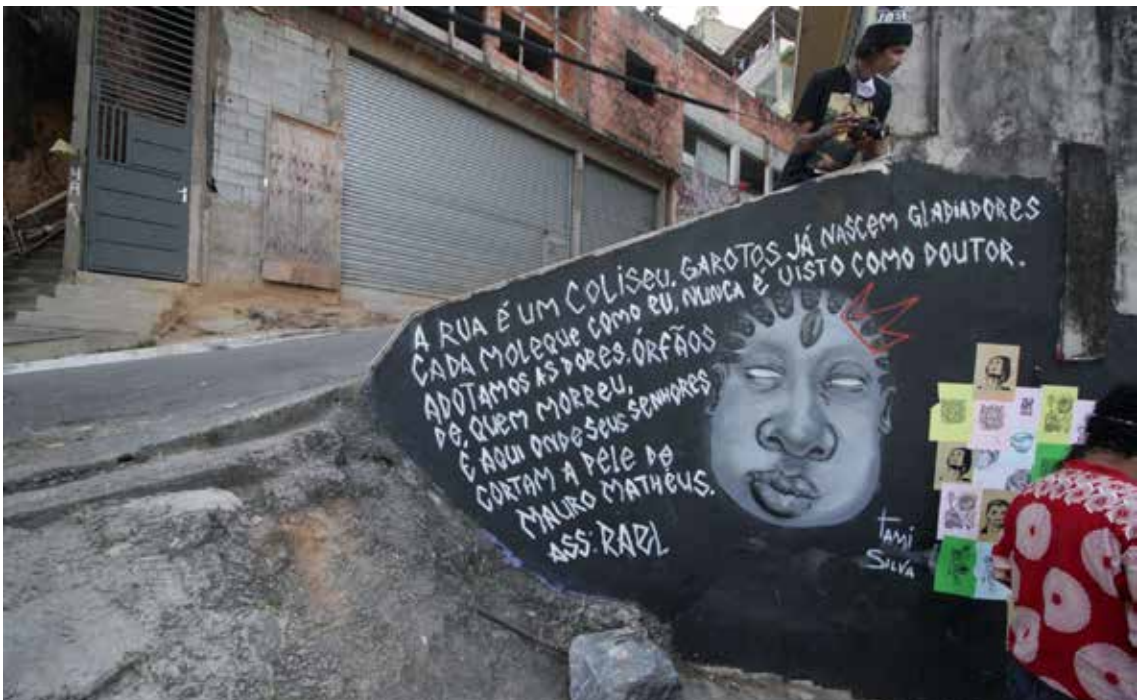 A RUA É UM COLISEU. GAROTOS JÁ NASCEM GLADIADORES
CADA MOLEQUE COMO EU, NUNCA É VISTO COMO DOUTOR.
ADOTAMOS AS DORES. ÓRFÃOS
DE QUEM MORREU,
É AQUI ONDE SEUS SENHORES
CORTAM A PELE DE
MAURO MATHEUS.
ASS: RAEL
TAMI
SILVA